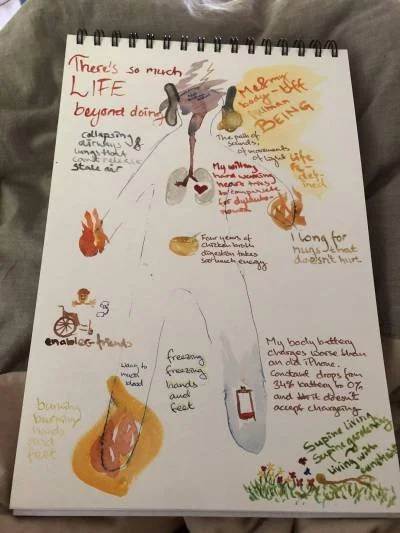 There's so much
LIFE
beyond doing
Me & my
body - BFF
Human
BEING
collapsing
airways &
lungs that
can't release
stale air
The pain of
sounds,
of movements
of light
My willing
hard working
heart tries
to compensate
for
Life
I long for
hugs - that
doesn't hurt
Four years of
chicken broth
digestion takes
so much energy
enabler-friends
way to
much
blood
freezing
freezing
hands
and
feet
burning
burning
hands
and
feet
My body battery
charges worse than
an old iPhone.
Constant drops from
34% battery to 0%
and it doesn't
accept charging
Supine living
Supine gardening
Living with